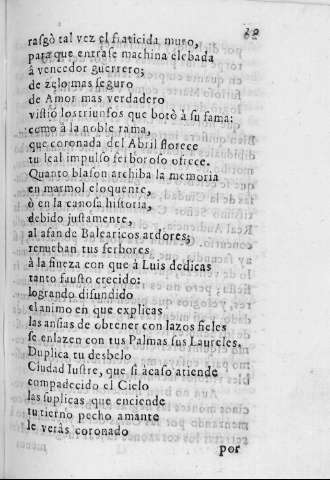 29
rasgò tal vez el fraticida muro,
para que entrase machina elebada
â vencedor guerrero;
de zelo mas seguro
de Amor mas verdadero
vistiò los triunfos que borò â su fama:
como à la noble rama,
que coronada del Abril florece
tu leal impulso ferboroso ofrece.
Quanto blason archiba la memoria
en marmol eloquente,
ò en la canosa historia,
debido justamente,
al afan de Balearicos ardores,
renueban tus ferbores
à la fineza con que à Luis dedicas
tanto fausto crecido:
logrando difundido
el animo en que explicas
las ansias de obtener con lazos fieles
se enlazen con tus Palmas sus Laureles.
Duplica tu desbelo
Ciudad Iustre, que si acaso atiende
compadecido el Cielo
las suplicas que enciende
tu tierno pecho amante
le veràs coronado
por